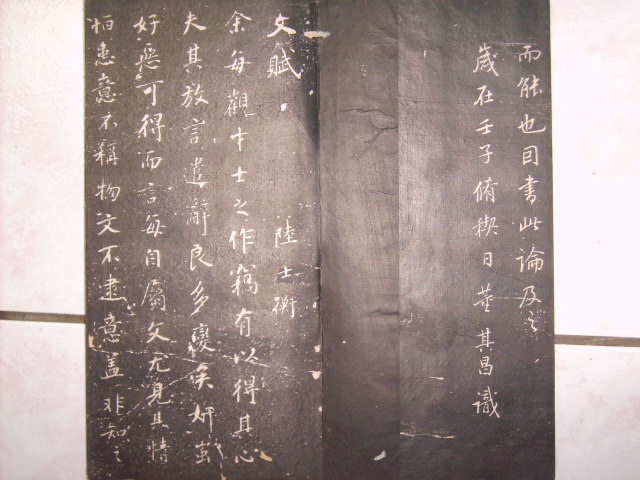 而能也因書此論及之
歲在壬子脩禊日董其昌識
文賦 陸士衡
余每觀才士之作竊有以得其心
夫其放言遣辭良多變矣妍蚩
好惡可得而言每自屬文尤見其情
恒患意不稱物文不逮意蓋非知之